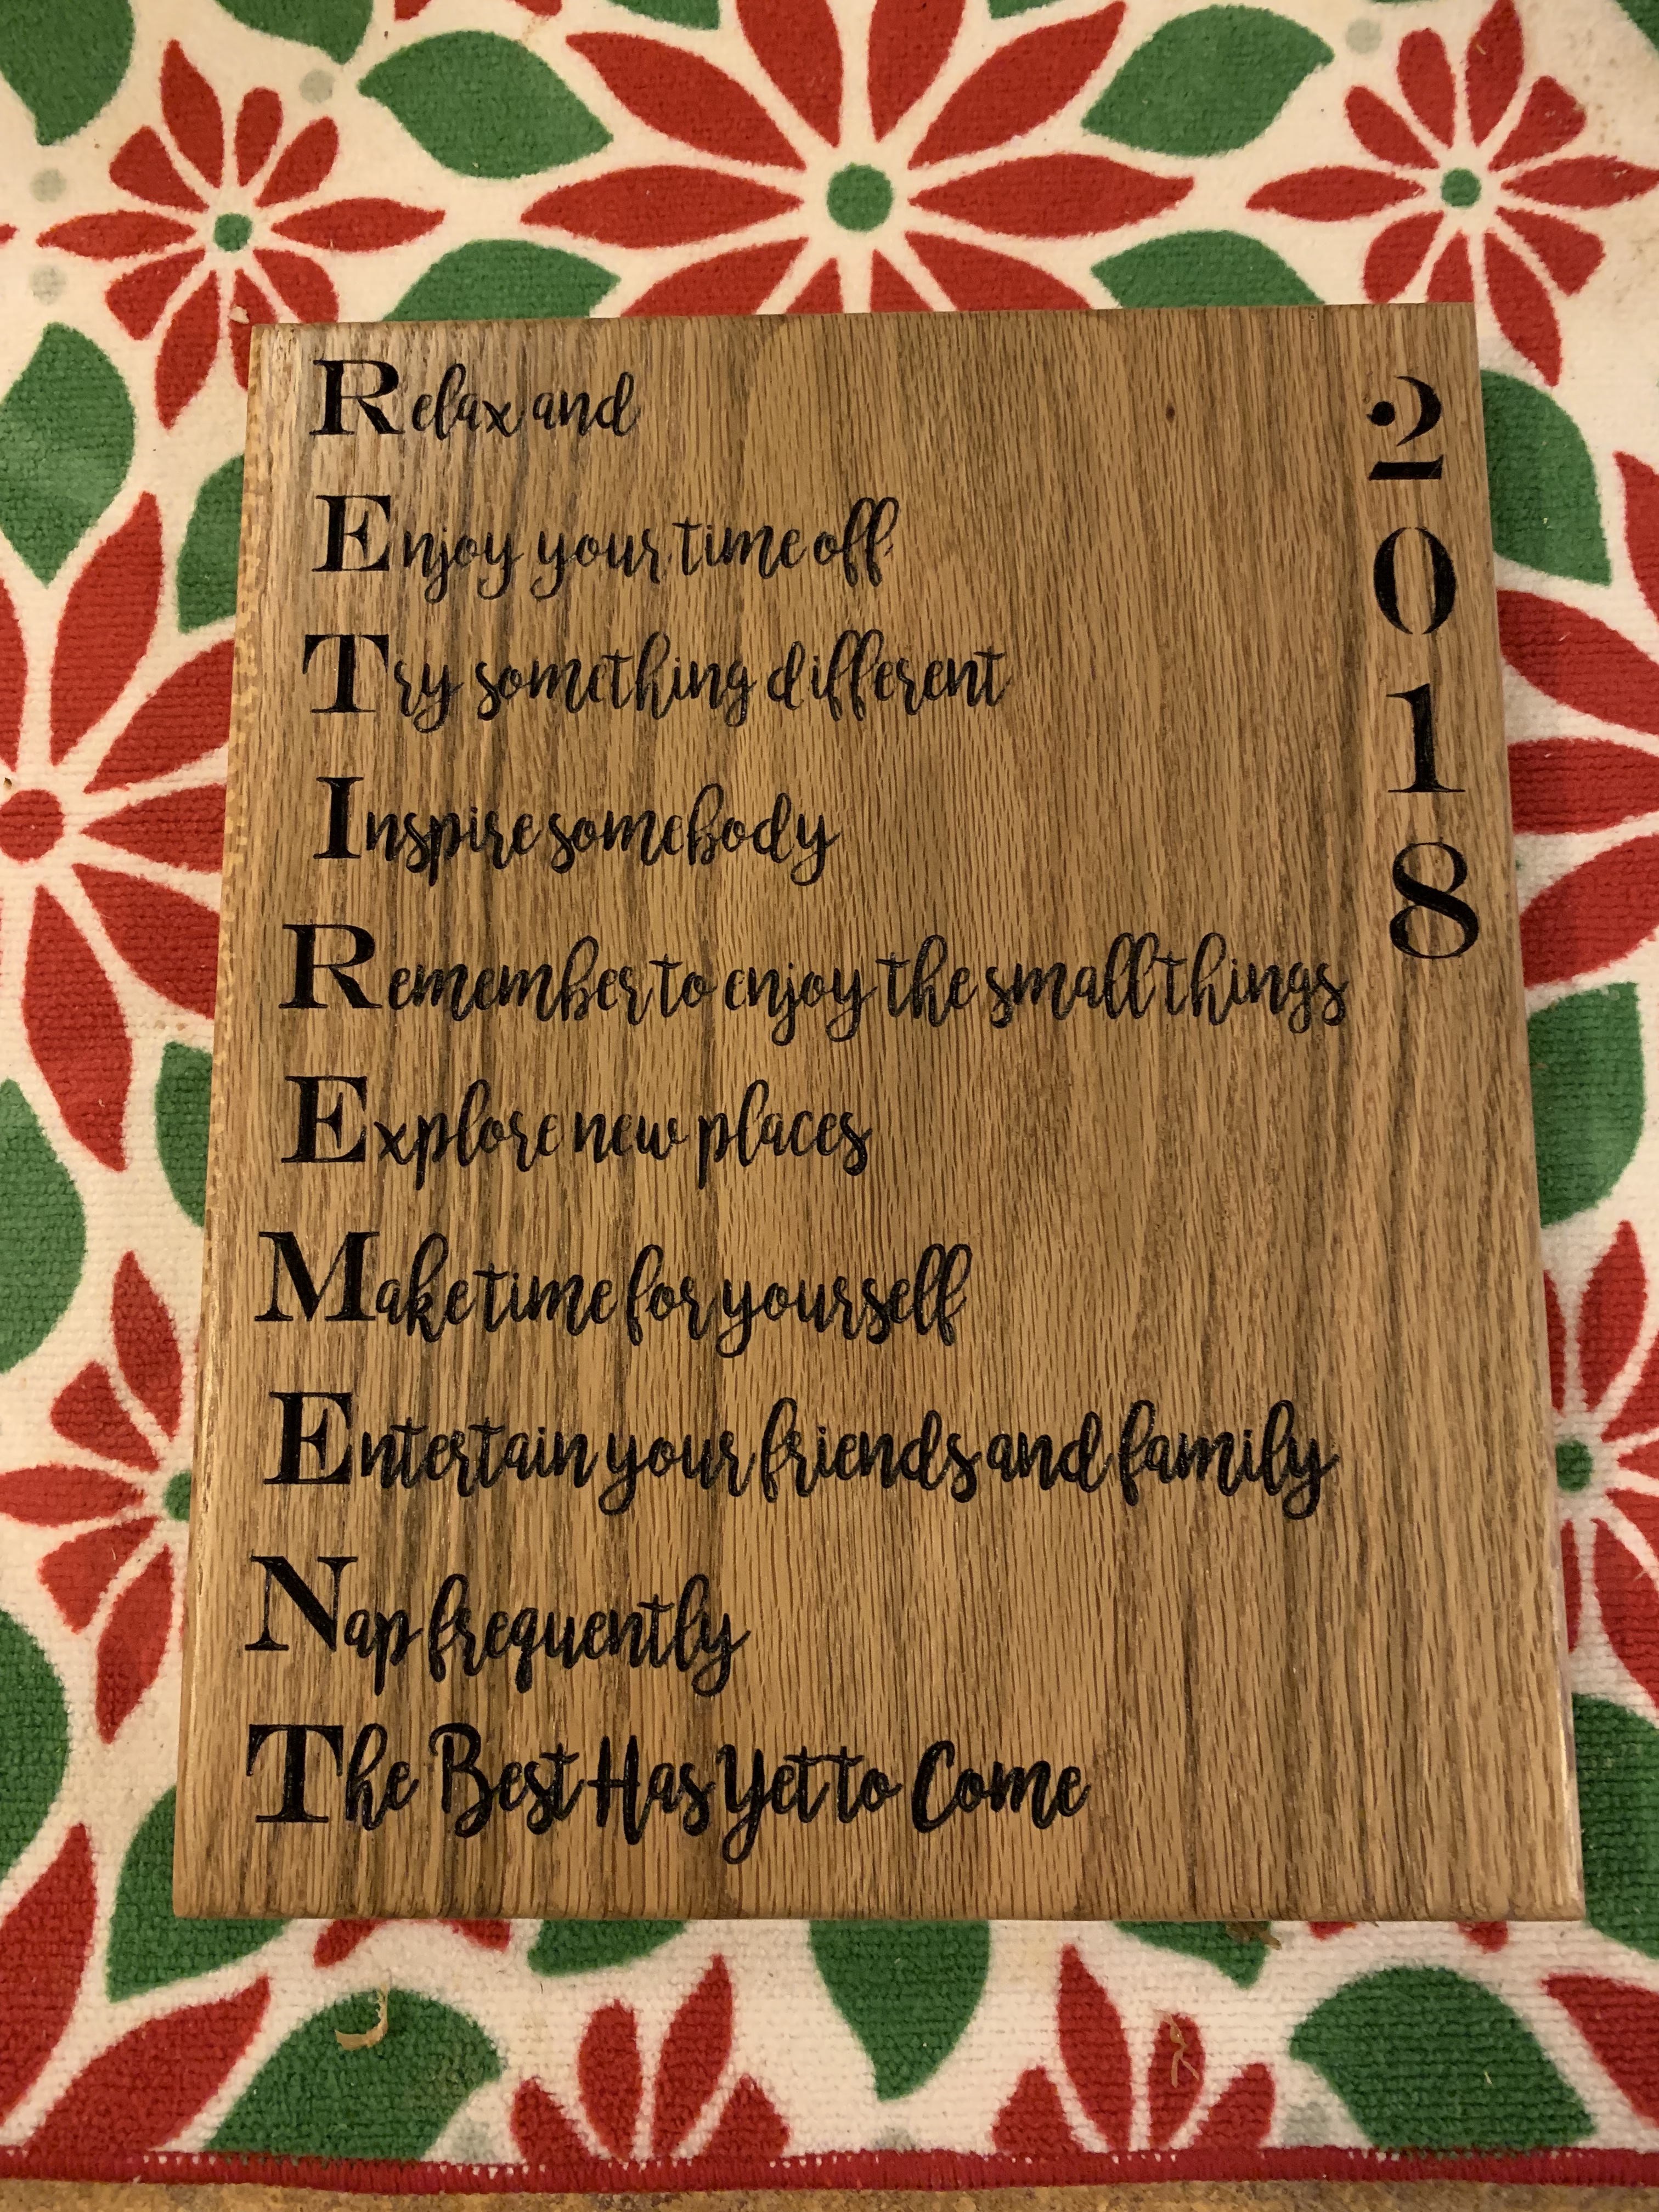 Relax and
Enjoy your time off
Try something different
Inspire somebody
Remember to enjoy the small things
Explore new places
Make time for yourself
Entertain your friends and family
Nap frequently
The Best Has Yet to Come
2
0
1
8